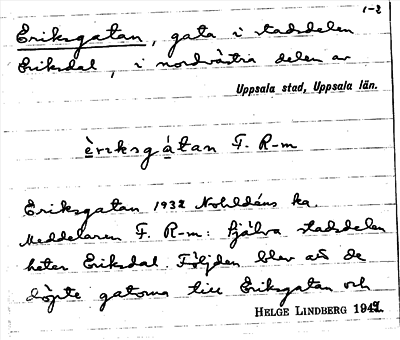 1-2
Eriksgatan, gata i stadsdelen
Eriksdal, i nordvästra delen av
Uppsala stad, Uppsala län.
èriksgátan F. R-m
Eriksgatan 1932 ka
Meddelaren F. R-m: Själva stadsdelen
heter Eriksdal. Följden blev att de
döpte gatorna till Eriksgatan och
HELGE LINDBERG 1942.